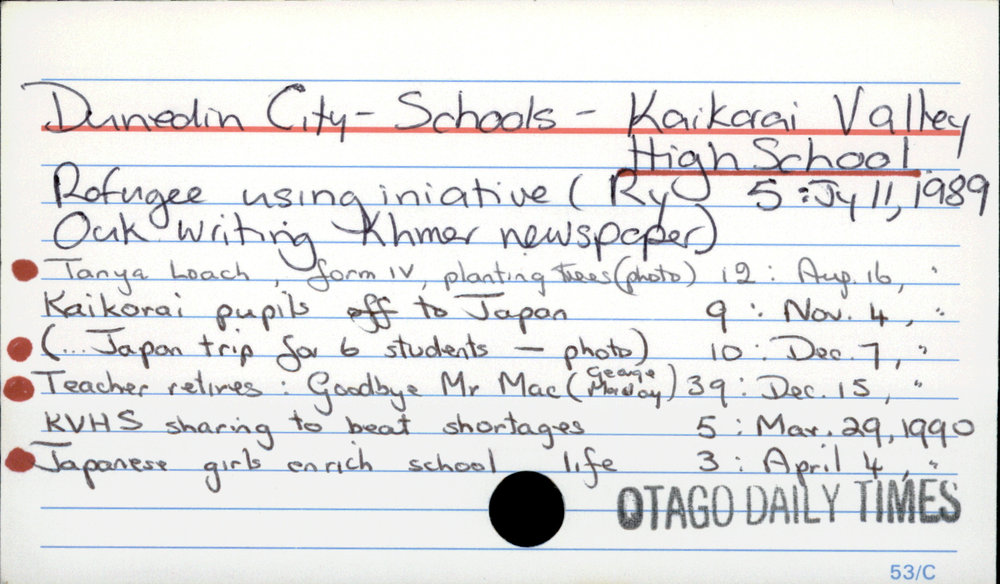 Dunedin City - Schools - Kaikorai Valley
High School
Refugee using iniative ( Ry 5 : Jy 11, 1989
Ouk writing Khmer newspaper)
Tanya Loach, form IV, planting trees (photo) 12 : Aug. 16, "
Kaikorai pupils off to Japan 9 : Nov. 4, "
(... Japan trip for 6 students - photo) 10 : Dec. 7, "
Teacher retires : Goodbye Mr Mac (George) 39 : Dec. 15, "
KVHS sharing to beat shortages 5 : Mar. 29, 1990
Japanese girls enrich school life 3 : April 4, "
OTAGO DAILY TIMES
53/C